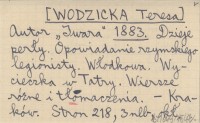 [WODZICKA Teresa]
Autor „Iwara" 1883. Dzieje
perły. Opowiadanie rzymskiego
legionisty. Włodkowa. Wy-
cieczka w Tatry. Wiersze
różne i tłomaczenia. - Kra-
ków. Stron 218, 3 nlb.